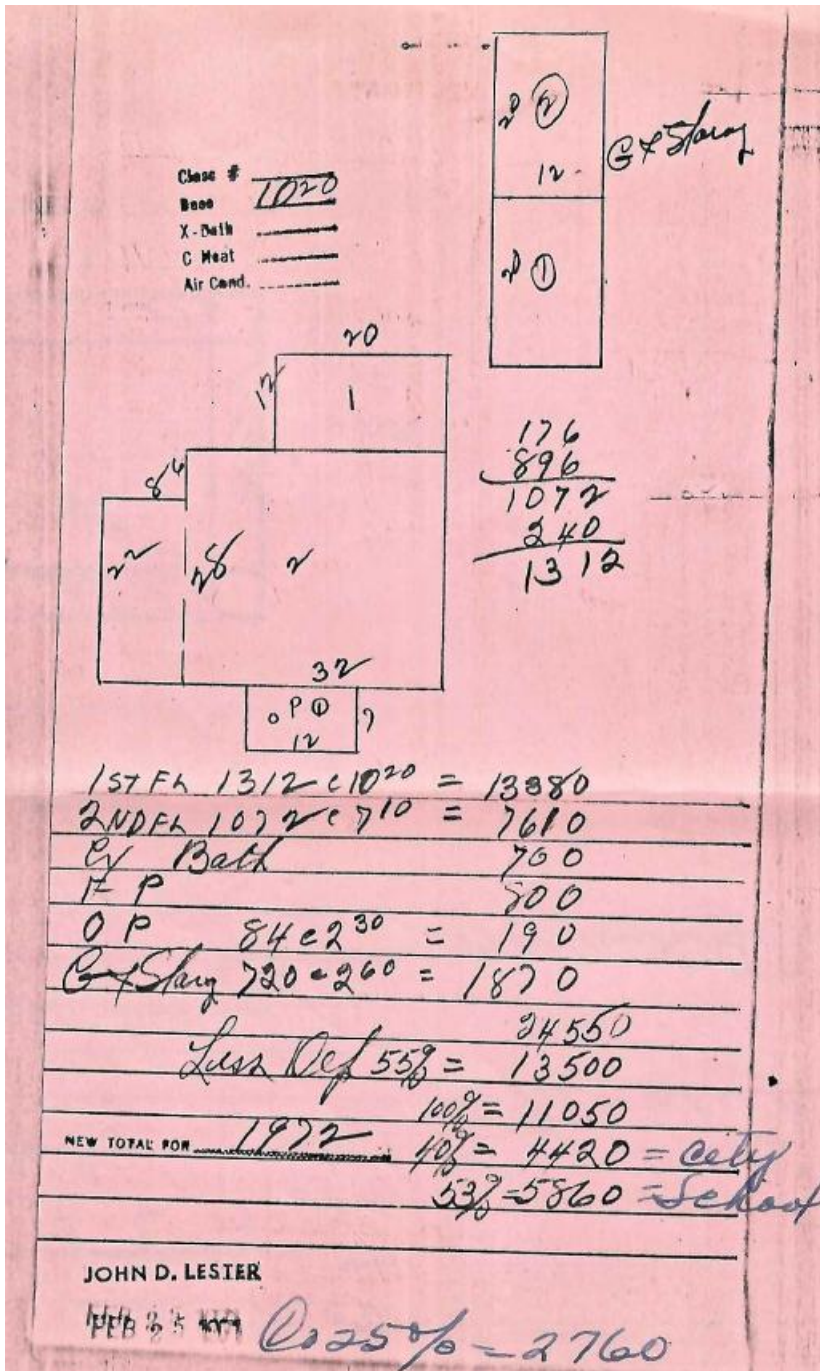 ② 20
12
G & Storag
① 20
Class #
Base 1020
X-Bath
C Heat
Air Cond.
20
12 1
6
8
22 28 2
32
O P ① 7
12
176
896
1072
240
1312
1ST FL 1312 @ 10 20 = 13380
2ND FL 1072 @ 7 10 = 7610
Bath 700
F P 800
O P 84 @ 2 30 = 190
G & Storag 720 @ 2 60 = 1870
24550
Less Def 55% = 13500
100% = 11050
NEW TOTAL FOR 1972 40% = 4420 = City
53% = 5860 = School
JOHN D. LESTER
FEB 25
Co 25% = 2760